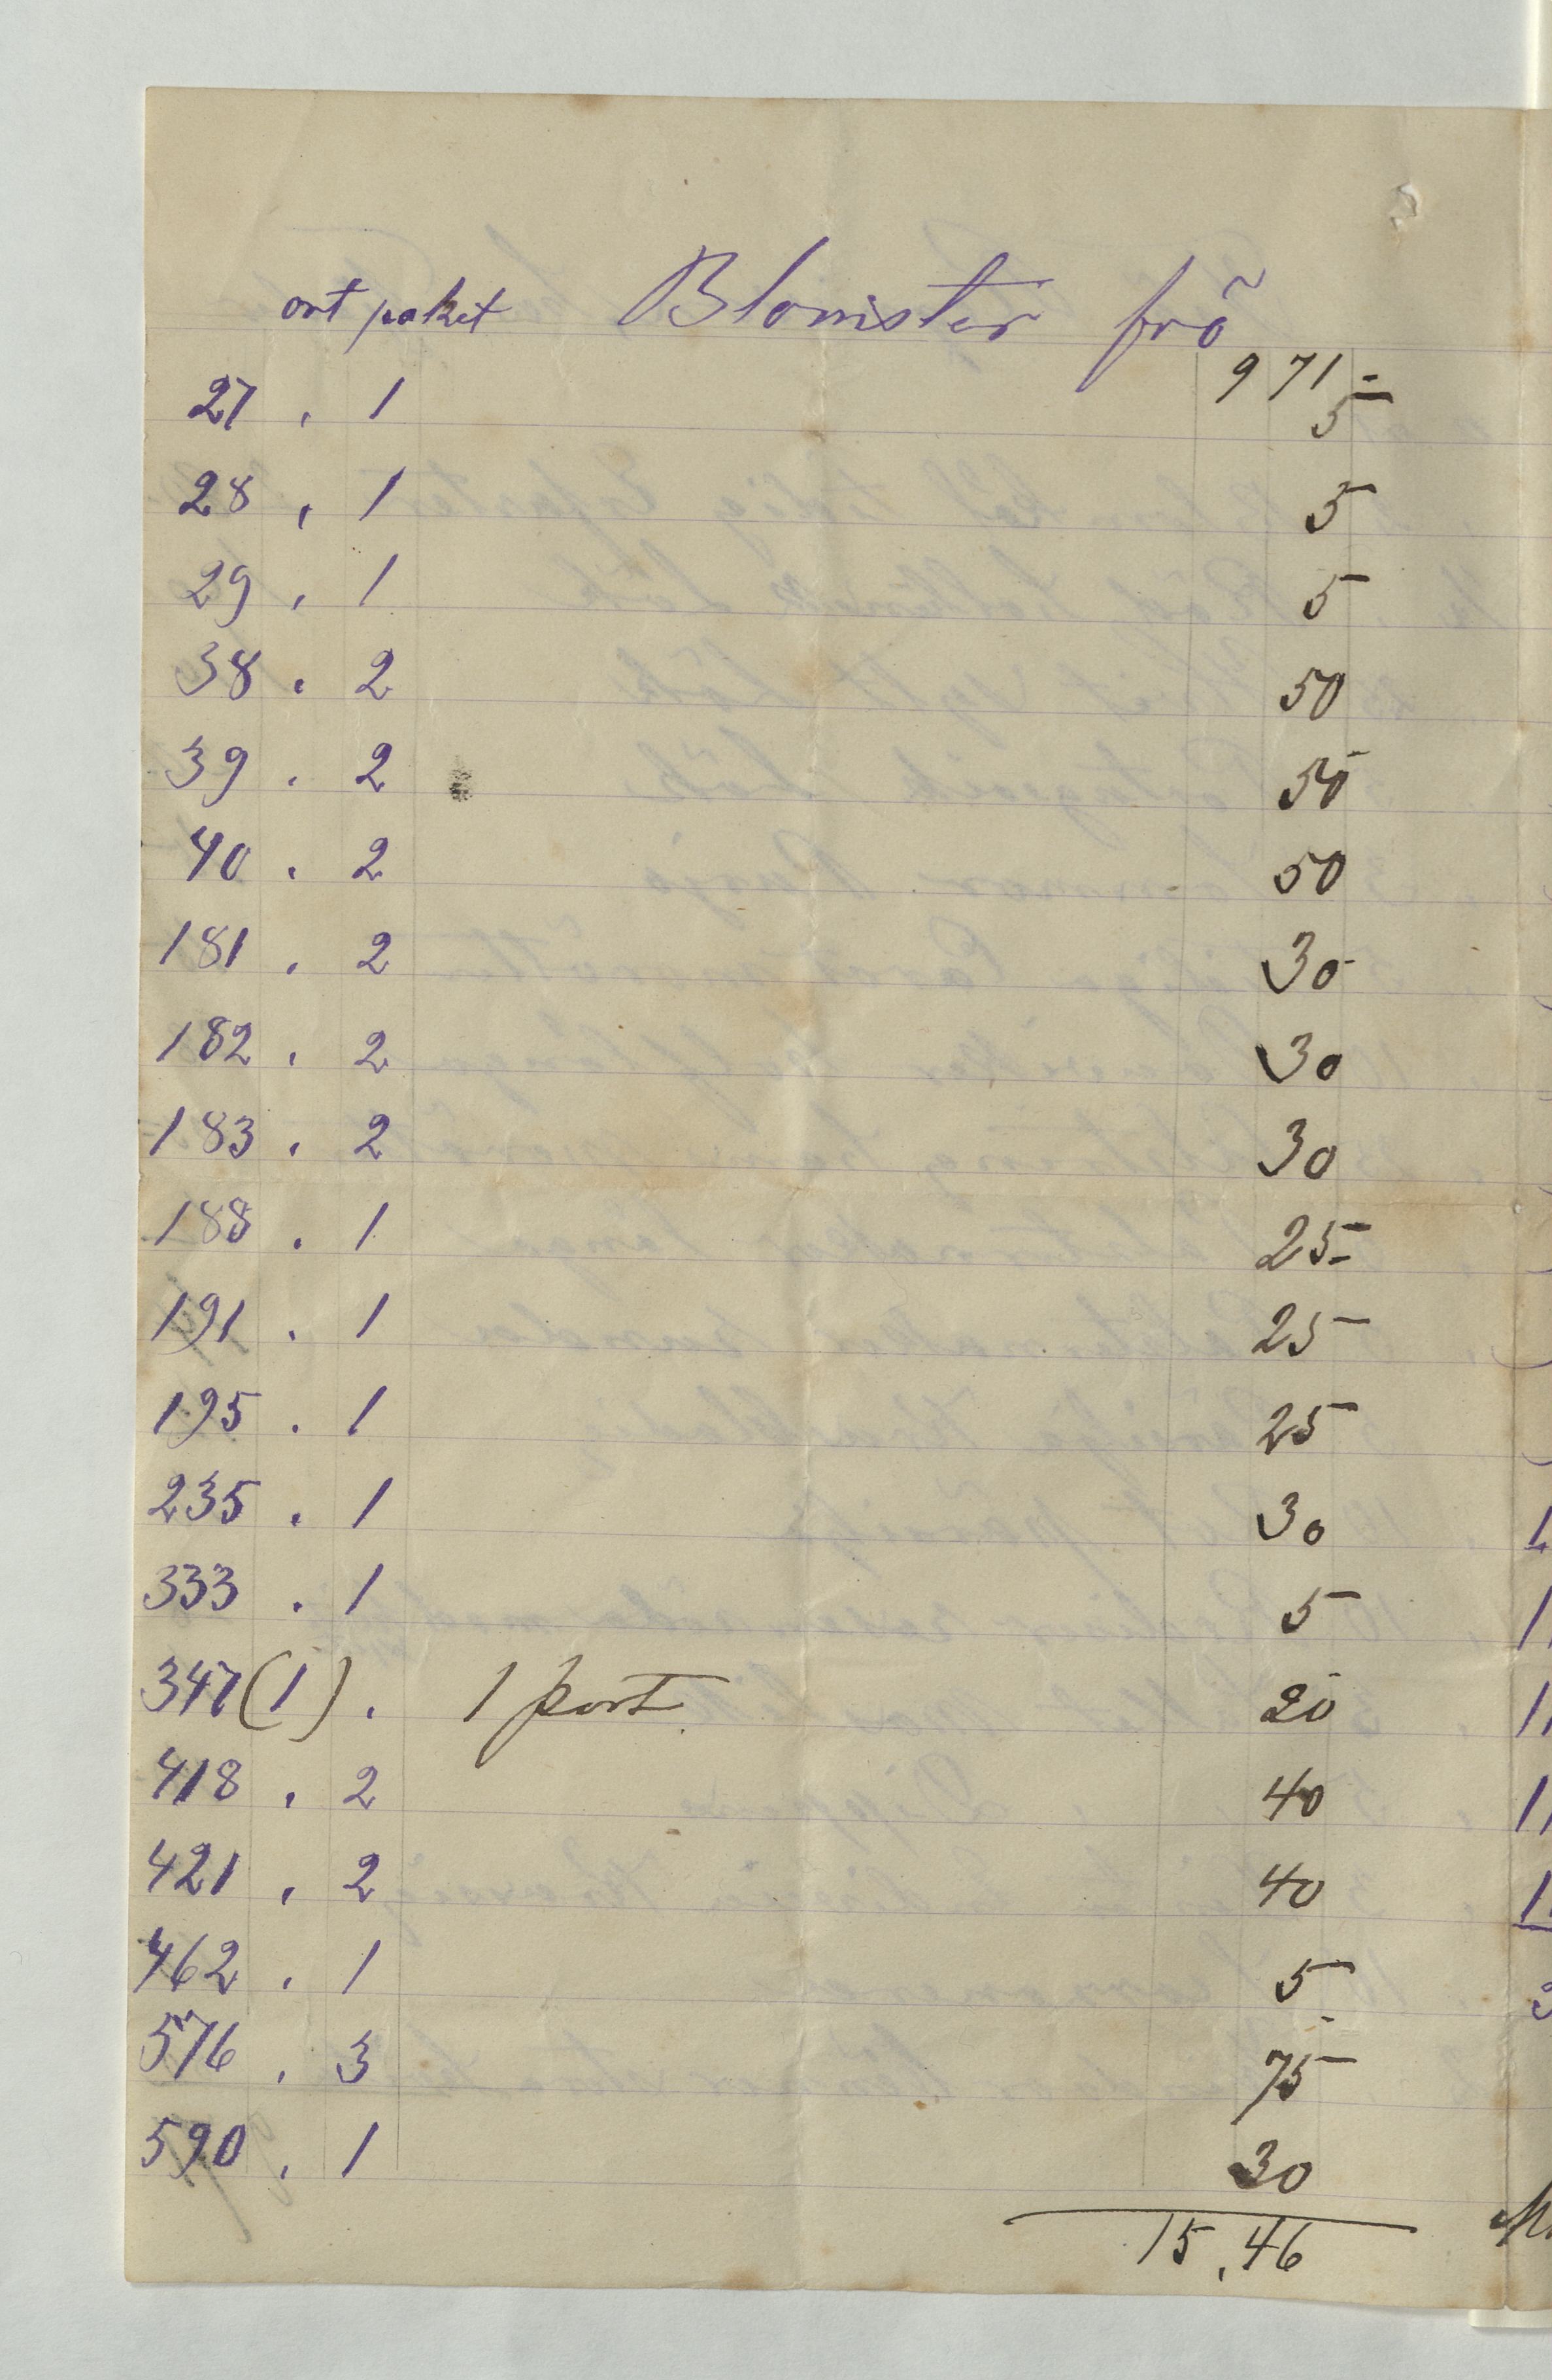 ort paket Blomster frö
971-
27 . 1 5
28 . 1 5
29 . 1 5
38 . 2 50
39 . 2 50
40 . 2 50
181 . 2 30
182 . 2 30
183 . 2 30
188 . 1 25
191 . 1 25
195 . 1 25
235 . 1 30
333 . 1 5
347 (1) . 1 port. 20
418 . 2 40
421 . 2 40
462 . 1 5
576 . 3 75
590 . 1 30
15,46